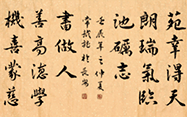 苑幸得天
朗瑞氣臨
池礪志
壬辰年之仲夏
於長安
書做人
善高德學
機喜蒙慈